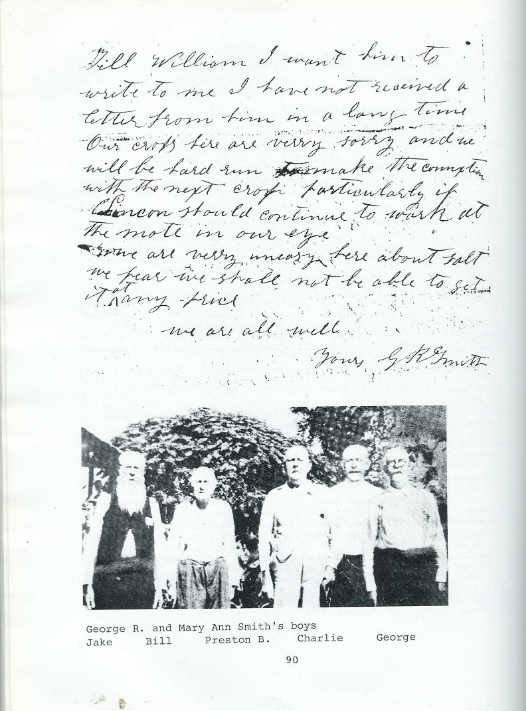 Till William I want him to
write to me I have not received a
letter from him in a long time
Our crops here are verry sorry and we
will be hard run to make the connection
with the next crop particularly if
Lincon should continue to work at
the mote in our eye
we are verry uneasy here about salt
we fear we shall not be able to get
it at any price
we are all well
Yours G R Smith
George R. and Mary Ann Smith's boys
Jake Bill Preston B. Charlie George
90